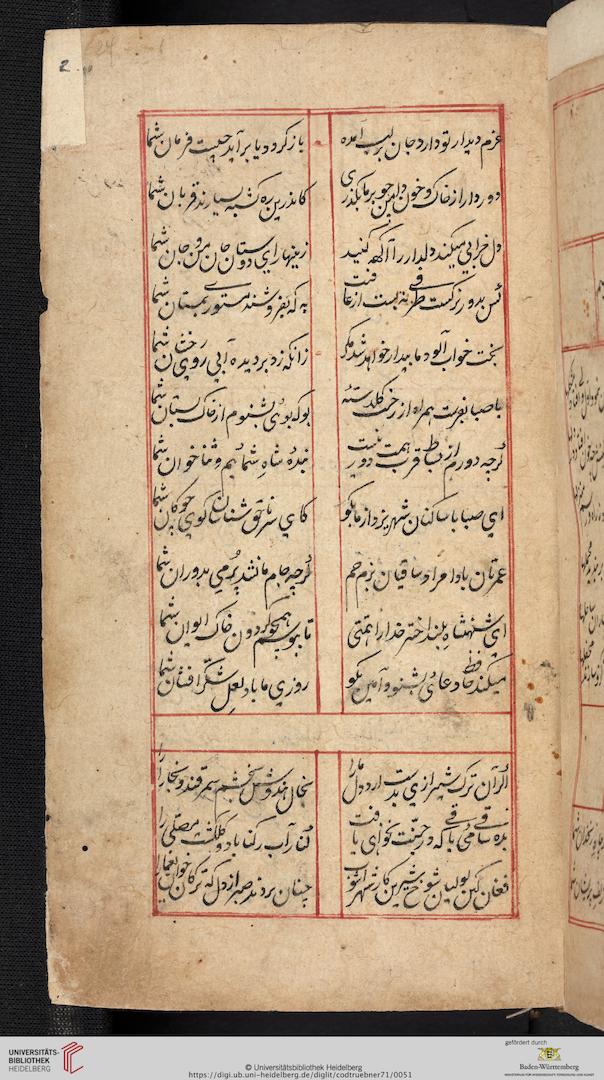 2
عزم دیدار تو دارد جان بر لب آمده
باز کردد یا برآید چیست فرمان شما
دور دار از خاک و خون دامن چو بر ما بکذری
کاندرین ره کشته بسیارند قربان شما
دل خرابی میکند دلدار را آکه کنید
زینهار ای دوستان جان من و جان شما
کس بدور نرکست طرفی نه بست از عافیت
به که نفروشند مستوری بمستان شما
بخت خواب آلود ما بیدار خواهد شد مکر
زانکه زد بر دیده آبی روی رخشان شما
با صبا بفرست همراه از رخت کلدسته
بو که بوئی بشنوم از خاک بستان شما
کرچه دورم از بساط قرب همت دور نیست
بنده شاه شمائیم و ثناخوان شما
ای صبا با ساکنان شهر یزد از ما بکو
کای سر ناحق شناسان کوی چوکان شما
عمرتان بادا مراد ساقیان بزم جم
کرچه جام ما نشد پر می بدوران شما
ای شهنشاه بلند اختر خدا را همتی
تا ببوسم همچو کردون خاک ایوان شما
میکند حافظ دعائی بشنو و آمین بکو
روزی ما باد لعل شکر افشان شما
اکر آن ترک شیرازی بدست ارد دل ما را
بخال هندوش بخشم سمرقند و بخارا را
بده ساقی می باقی که در جنت نخواهی یافت
کنار آب رکناباد و کلکشت مصلی را
فغان کین لولیان شوخ شیرین کار شهر آشوب
چنان بردند صبر از دل که ترکان خوان یغما را
UNIVERSITÄTS-
BIBLIOTHEK
HEIDELBERG
© Universitätsbibliothek Heidelberg
https://digi.ub.uni-heidelberg.de/diglit/codtruebner71/0051
gefördert durch
Baden-Württemberg